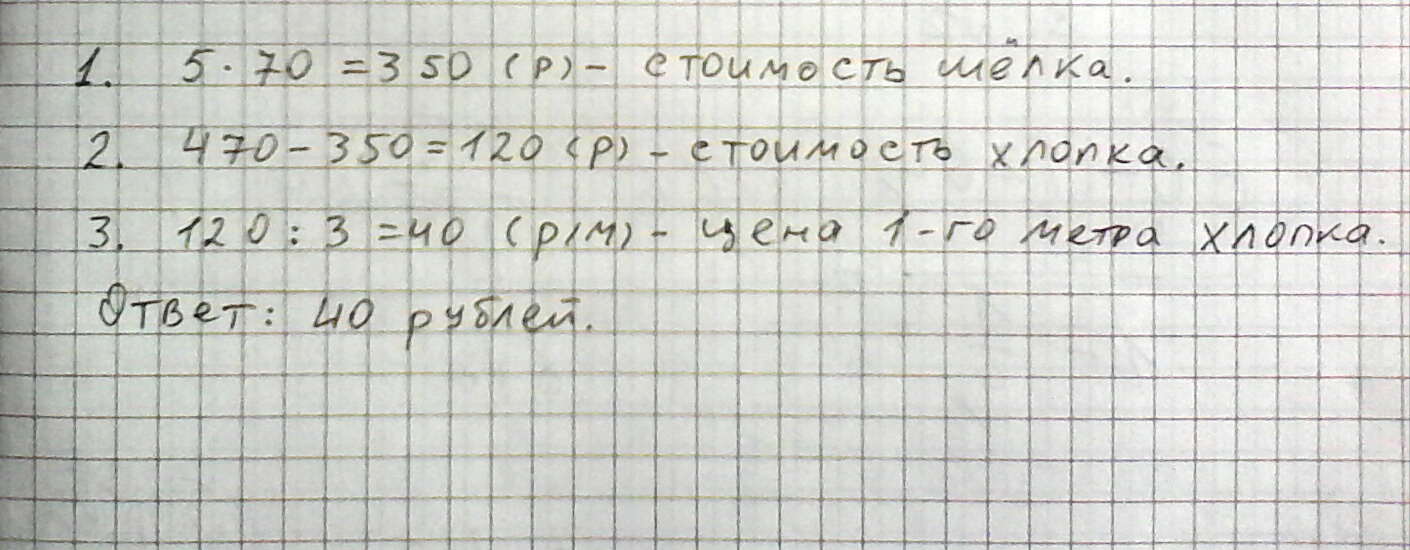 1. 5·70=350 (р) – стоимость шёлка.
2. 470–350=120 (р) – стоимость хлопка.
3. 120:3=40 (р/м) – цена 1-го метра хлопка.
Ответ: 40 рублей.